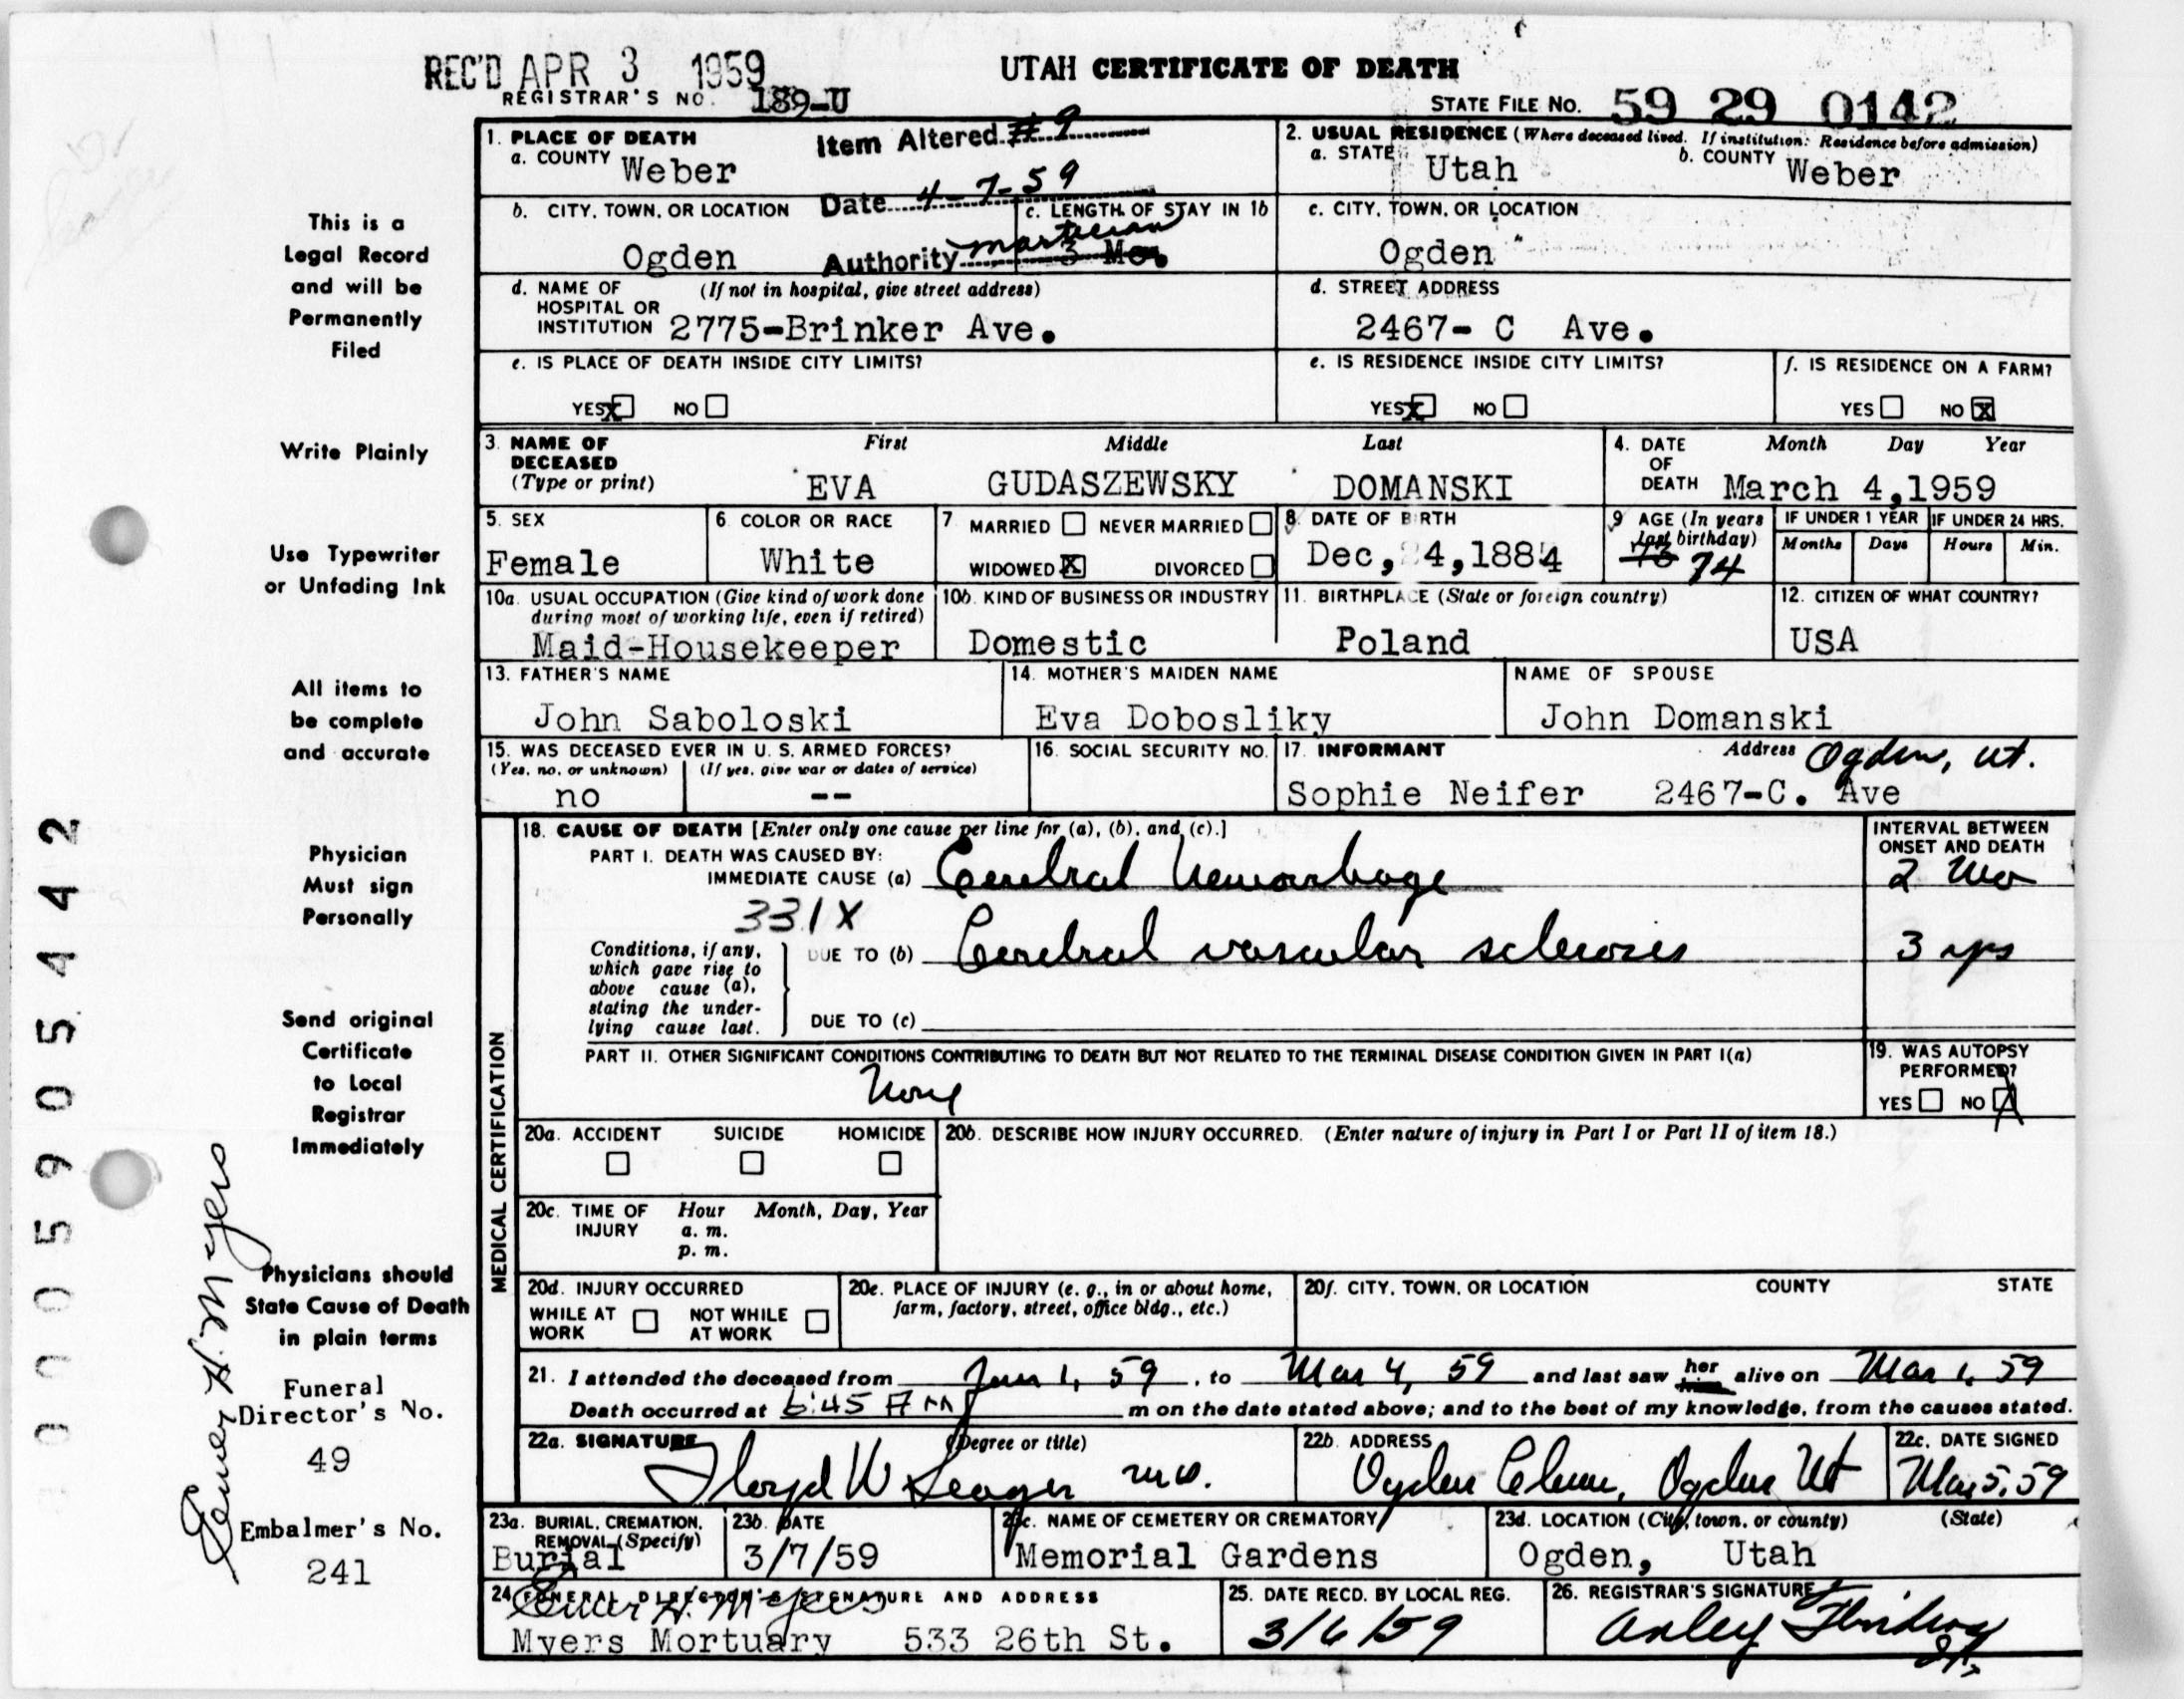 REC'D APR 3 1959
REGISTRAR'S NO. 189-U
UTAH CERTIFICATE OF DEATH
STATE FILE NO. 59 29 0142
1. PLACE OF DEATH
a. COUNTY Weber
Item Altered #9
Date 4-7-59
Authority mortician
2. USUAL RESIDENCE (Where deceased lived. If institution: Residence before admission)
a. STATE Utah
b. COUNTY Weber
b. CITY, TOWN, OR LOCATION
Ogden
c. LENGTH OF STAY IN 1b
3 Mos.
c. CITY, TOWN, OR LOCATION
Ogden
d. NAME OF HOSPITAL OR INSTITUTION (If not in hospital, give street address)
2775-Brinker Ave.
d. STREET ADDRESS
2467- C Ave.
e. IS PLACE OF DEATH INSIDE CITY LIMITS?
YES X NO
e. IS RESIDENCE INSIDE CITY LIMITS?
YES X NO
f. IS RESIDENCE ON A FARM?
YES NO X
3. NAME OF DECEASED (Type or print)
First Middle Last
EVA GUDASZEWSKY DOMANSKI
4. DATE OF DEATH Month Day Year
March 4,1959
5. SEX
Female
6. COLOR OR RACE
White
7. MARRIED NEVER MARRIED
WIDOWED X DIVORCED
8. DATE OF BIRTH
Dec, 4,1884
9. AGE (In years last birthday)
74
IF UNDER 1 YEAR
Months Days
IF UNDER 24 HRS.
Hours Min.
10a. USUAL OCCUPATION (Give kind of work done during most of working life, even if retired)
Maid-Housekeeper
10b. KIND OF BUSINESS OR INDUSTRY
Domestic
11. BIRTHPLACE (State or foreign country)
Poland
12. CITIZEN OF WHAT COUNTRY?
USA
13. FATHER'S NAME
John Saboloski
14. MOTHER'S MAIDEN NAME
Eva Dobosliky
NAME OF SPOUSE
John Domanski
15. WAS DECEASED EVER IN U. S. ARMED FORCES?
(Yes, no, or unknown) (If yes, give war or dates of service)
no --
16. SOCIAL SECURITY NO.
17. INFORMANT Address Ogden, Ut.
Sophie Neifer 2467-C. Ave
MEDICAL CERTIFICATION
18. CAUSE OF DEATH [Enter only one cause per line for (a), (b), and (c).]
INTERVAL BETWEEN ONSET AND DEATH
PART I. DEATH WAS CAUSED BY:
IMMEDIATE CAUSE (a) Cerebral hemorrhage 2 mo
331X
Conditions, if any, which gave rise to above cause (a), stating the underlying cause last.
DUE TO (b) Cerebral vascular sclerosis 3 yrs
DUE TO (c)
PART II. OTHER SIGNIFICANT CONDITIONS CONTRIBUTING TO DEATH BUT NOT RELATED TO THE TERMINAL DISEASE CONDITION GIVEN IN PART I(a)
None
19. WAS AUTOPSY PERFORMED?
YES NO X
20a. ACCIDENT SUICIDE HOMICIDE
20b. DESCRIBE HOW INJURY OCCURRED. (Enter nature of injury in Part I or Part II of item 18.)
20c. TIME OF INJURY Hour Month, Day, Year
a. m.
p. m.
20d. INJURY OCCURRED
WHILE AT WORK NOT WHILE AT WORK
20e. PLACE OF INJURY (e. g., in or about home, farm, factory, street, office bldg., etc.)
20f. CITY, TOWN, OR LOCATION COUNTY STATE
21. I attended the deceased from Jan 1, 59, to Mar 4, 59 and last saw her alive on Mar 1, 59
Death occurred at 6:45 AM m on the date stated above; and to the best of my knowledge, from the causes stated.
22a. SIGNATURE (Degree or title)
Floyd W Seager M.D.
22b. ADDRESS
Ogden Clinic, Ogden Ut
22c. DATE SIGNED
Mar 5, 59
23a. BURIAL, CREMATION, REMOVAL (Specify)
Burial
23b. DATE
3/7/59
23c. NAME OF CEMETERY OR CREMATORY
Memorial Gardens
23d. LOCATION (City, town, or county) (State)
Ogden, Utah
24. FUNERAL DIRECTOR'S SIGNATURE AND ADDRESS
Elmer H. Myers
Myers Mortuary 533 26th St.
25. DATE RECD. BY LOCAL REG.
3/6/59
26. REGISTRAR'S SIGNATURE
This is a
Legal Record
and will be
Permanently
Filed
Write Plainly
Use Typewriter
or Unfading Ink
All items to
be complete
and accurate
Physician
Must sign
Personally
Send original
Certificate
to Local
Registrar
Immediately
Physicians should
State Cause of Death
in plain terms
Funeral
Director's No.
49
Embalmer's No.
241
Elmer H. Myers
0005905442